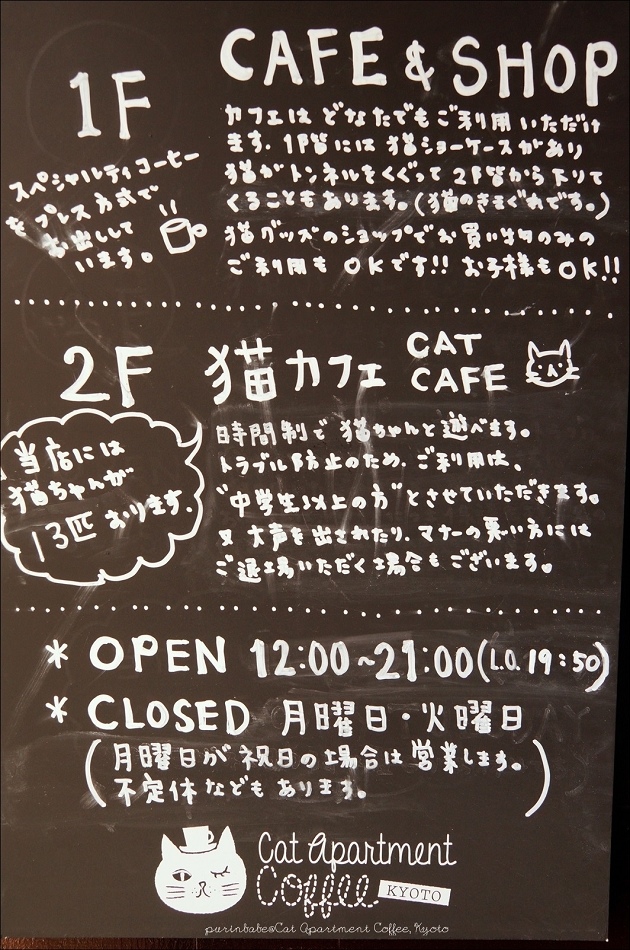 CAFE & SHOP
1F
カフェは どなたでもご利用 いただけ
ます. 1F階には 猫ショーケースがあり
猫がトンネルをくぐって 2F階から下りて
くることもあります。(猫のきまぐれです。)
猫グッズのショップでお買い物のみの
ご利用も OKです!! お子様もOK!!
スペシャルティコーヒー
を プレス方式で
お出しして
います。
2F 猫カフェ CAT
CAFE
時間制で 猫ちゃんと遊べます。
トラブル防止のため. ご利用は、
"中学生以上の方"とさせていただきます。
又 大声を出されたり. マナーの悪い方には
ご退場いただく場合もございます。
当店には
猫ちゃんが
13匹 おります.
* OPEN 12:00~21:00(L.O. 19:50)
* CLOSED 月曜日・火曜日
(月曜日が祝日の場合は営業します。
不定休などもあります。)
Cat Apartment
Coffee KYOTO
purinbabe@Cat Apartment Coffee, Kyoto